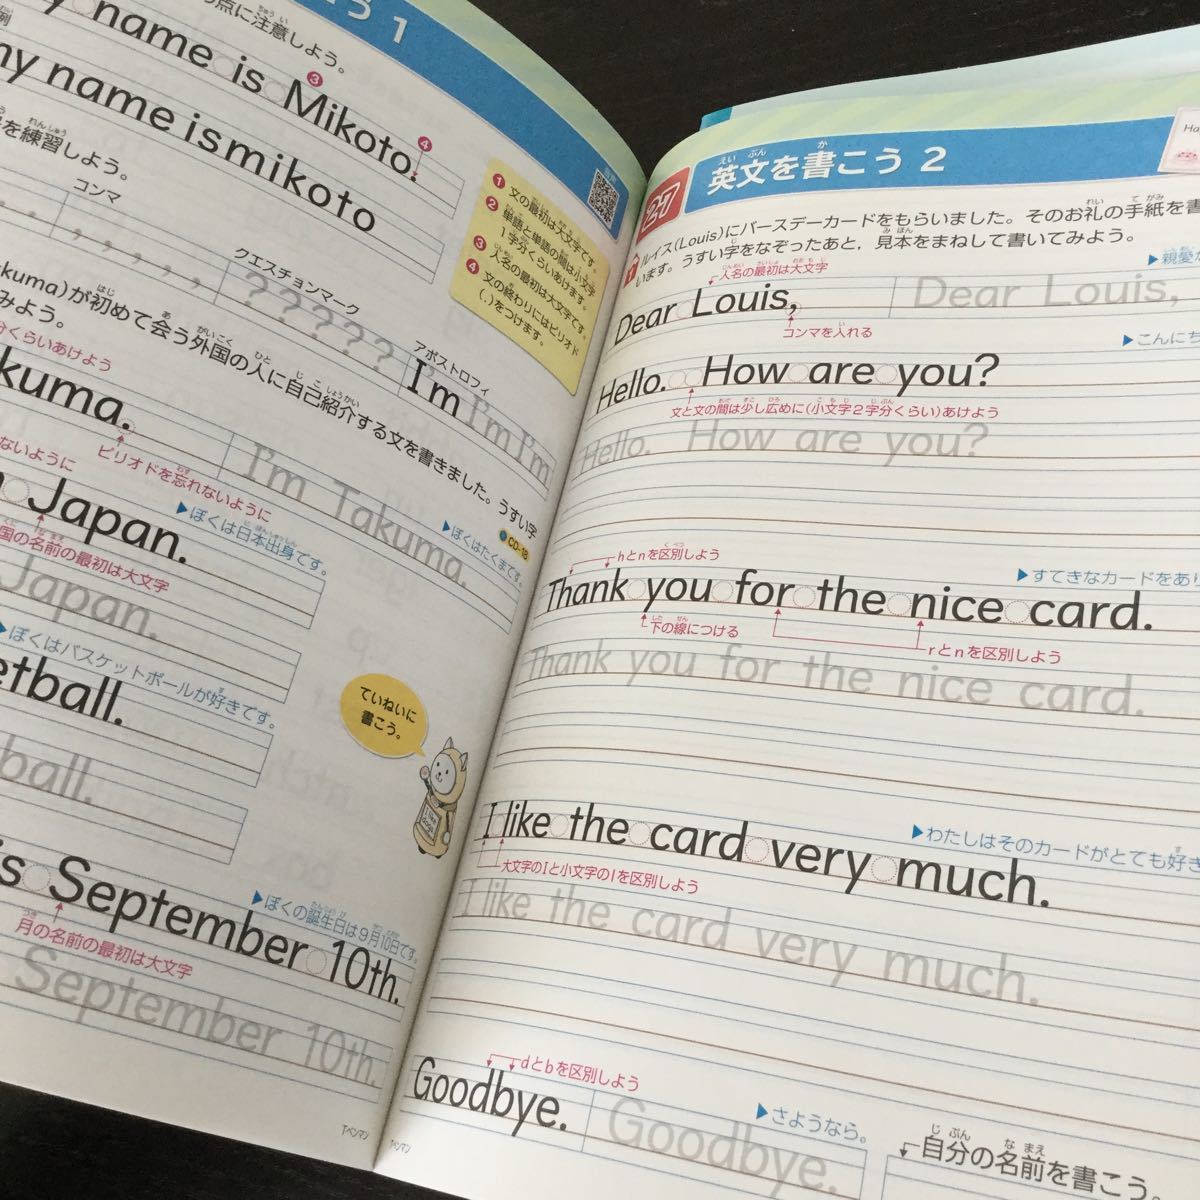 う 1
点に注意しよう。
例
y name is Mikoto.
❸
❹
my name ismikoto
を練習しよう。
れんしゅう
コンマ
クエスチョンマーク
? ? ? ? ?
アポストロフィ
I'm I'm I'm
❶ 文の最初は大文字です。
❷ 単語と単語の間は小文字
1字分くらいあけます。
❸ 人名の最初は大文字です。
❹ 文の終わりにはピリオド
(.)をつけます。
kuma)が初めて会う外国の人に自己紹介する文を書きました。うすい字
みよう。
CD-18
くらいあけよう
▶ぼくはたくまです。
kuma.
I'm Takuma.
ピリオドを忘れないように
ないように
▶ぼくは日本出身です。
Japan.
国の名前の最初は大文字
Japan.
▶ぼくはバスケットボールが好きです。
etball.
ball.
ていねいに
書こう。
I like
dogs.
▶ぼくの誕生日は9月10日です。
is September 10th.
月の名前の最初は大文字
September 10th.
Tペンマン
27
英文を書こう 2
えい ぶん か
Ha
1 ルイス(Louis)にバースデーカードをもらいました。そのお礼の手紙を書
います。うすい字をなぞったあと，見本をまねして書いてみよう。
人名の最初は大文字
▶親愛な
Dear Louis,
Dear Louis,
コンマを入れる
▶こんにち
Hello. How are you?
文と文の間は少し広めに(小文字2字分くらい)あけよう
Hello. How are you?
hとnを区別しよう
▶すてきなカードをあり
Thank you for the nice card.
下の線につける
rとnを区別しよう
Thank you for the nice card.
▶わたしはそのカードがとても好き
I like the card very much.
大文字のIと小文字のlを区別しよう
I like the card very much.
dとbを区別しよう
▶さようなら。
Goodbye.
Goodbye.
自分の名前を書こう。
じ ぶん な まえ
Tペンマン